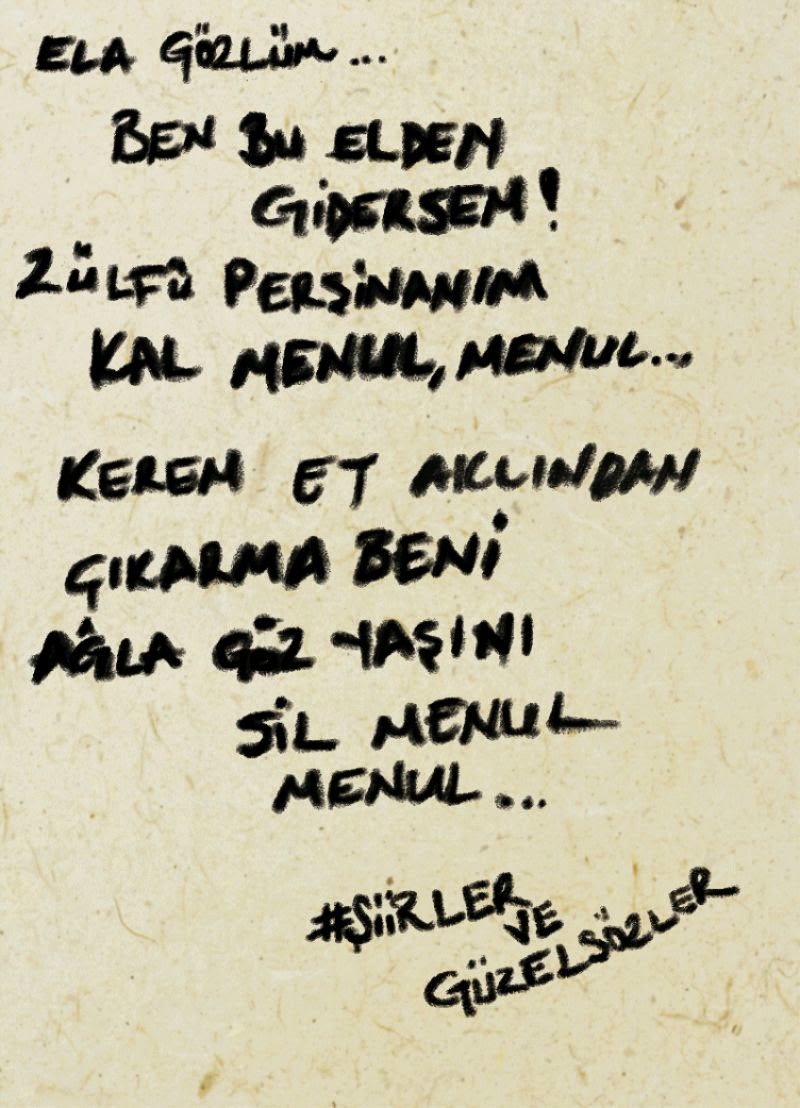 ELA GÖZLÜM...
BEN BU ELDEN
GİDERSEM!
ZÜLFÜ PERŞİNANIM
KAL MENUL, MENUL...
KEREM ET AKLINDAN
ÇIKARMA BENİ
AĞLA GÖZ YAŞINI
SİL MENUL
MENUL...
#ŞİİRLER
VE
GÜZELSÖZLER